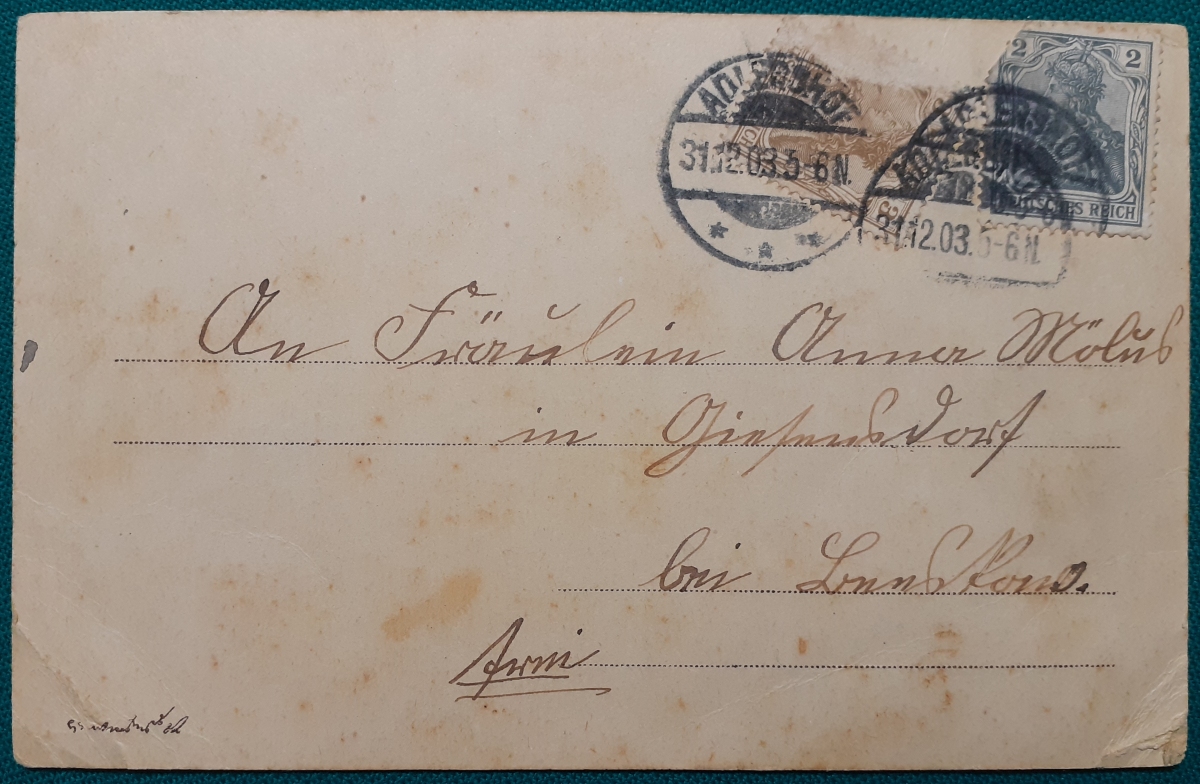 2 2
ADLERSHOF
31.12.03.5-6N.
ADLERSHOF
31.12.03.5-6N.
DEUTSCHES REICH
An Fräulein Anna Mölus
in Giesensdorf
bei Beeskow.
frei